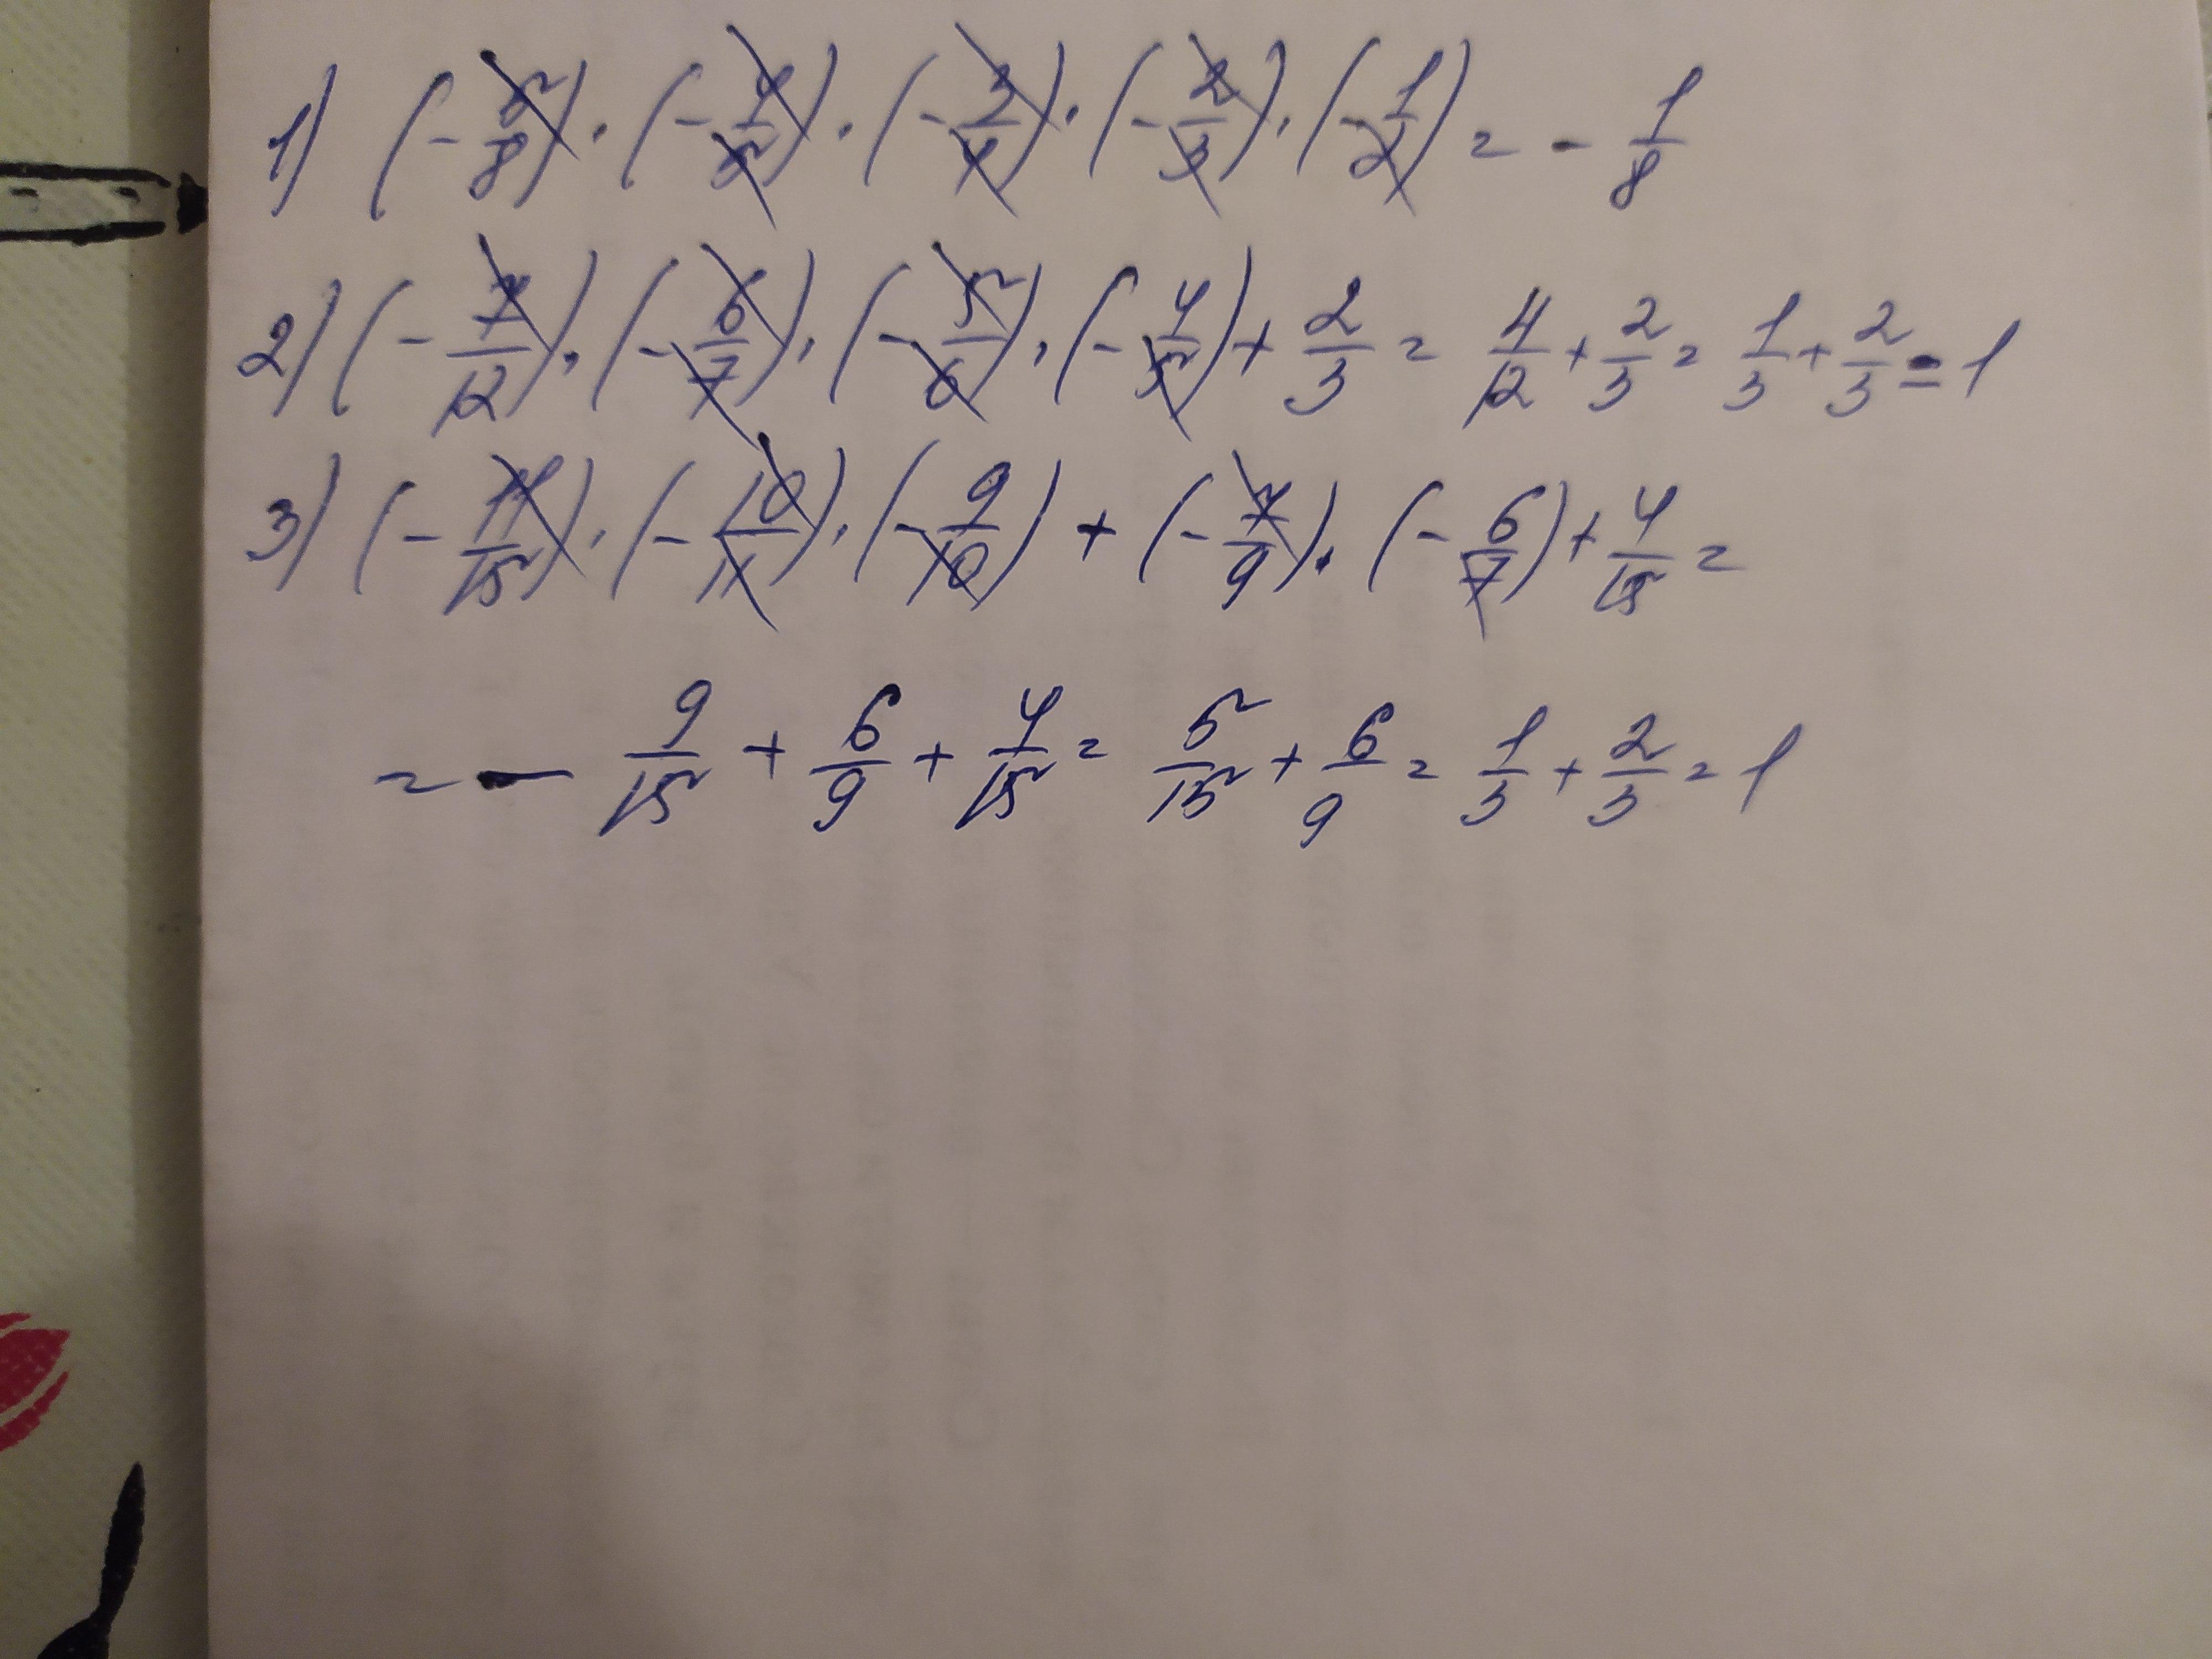 1) (-5/8)·(-4/5)·(-3/4)·(-2/3)·(-1/2) = -1/8
2) (-7/12)·(-6/7)·(-5/6)·(-4/5) + 2/3 = 4/12 + 2/3 = 1/3 + 2/3 = 1
3) (-11/15)·(-10/11)·(-9/10) + (-7/9)·(-6/7) + 4/15 =
= - 9/15 + 6/9 + 4/15 = 5/15 + 6/9 = 1/3 + 2/3 = 1